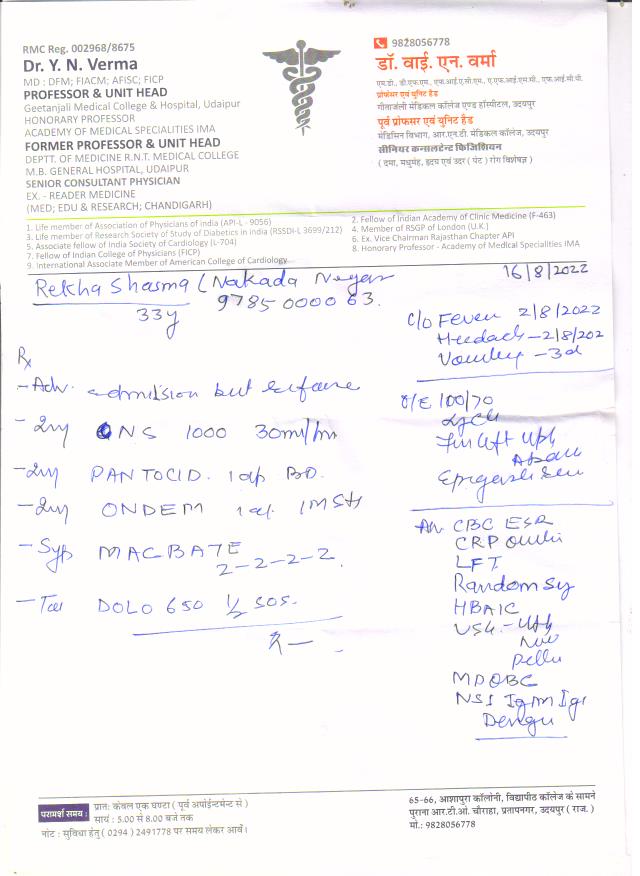 RMC Reg. 002968/8675
Dr. Y. N. Verma
MD : DFM; FIACM; AFISC; FICP
PROFESSOR & UNIT HEAD
Geetanjali Medical College & Hospital, Udaipur
HONORARY PROFESSOR
ACADEMY OF MEDICAL SPECIALITIES IMA
FORMER PROFESSOR & UNIT HEAD
DEPTT. OF MEDICINE R.N.T. MEDICAL COLLEGE
M.B. GENERAL HOSPITAL, UDAIPUR
SENIOR CONSULTANT PHYSICIAN
EX. - READER MEDICINE
(MED; EDU & RESEARCH; CHANDIGARH)
9828056778
डॉ. वाई. एन. वर्मा
एम.डी., डी.एफ.एम., एफ.आई.ए.सी.एम., ए.एफ.आई.एस.सी., एफ.आई.सी.पी.
प्रोफेसर एवं यूनिट हैड
गीतांजली मेडिकल कॉलेज एण्ड हॉस्पीटल, उदयपुर
पूर्व प्रोफेसर एवं यूनिट हैड
मेडिसिन विभाग, आर.एन.टी. मेडिकल कॉलेज, उदयपुर
सीनियर कन्सलटेन्ट फिजिशियन
( दमा, मधुमेह, हृदय एवं उदर ( पेट ) रोग विशेषज्ञ )
1. Life member of Association of Physicians of india (API-L - 9056)
2. Fellow of Indian Academy of Clinic Medicine (F-463)
3. Life member of Research Society of Study of Diabetics in india (RSSDI-L 3699/212)
4. Member of RSGP of London (U.K.)
5. Associate fellow of India Society of Cardiology (L-704)
6. Ex. Vice Chairman Rajasthan Chapter API
7. Fellow of Indian College of Physicians (FICP)
8. Honorary Professor - Academy of Medical Specialities IMA
9. International Associate Member of American College of Cardiology
16/8/2022
Rekha Sharma ( Nakada Nagar
9785000063.
33y
C/O Fever 2/8/2022
Headach - 2/8/202
Vomitey - 3d
Rx
- Adv. admission but refuse
- Inj NS 1000 30ml/hr
- Inj PANTOCID. 1 op BD.
- Inj ONDEM 1 a.
- Syp MACBATE
2-2-2-2.
- Tab DOLO 650 1/2 SOS.
O/E 100/70
Adv CBC ESR
CRP
LFT
Random Sy
HBAIC
USG. -
MPQBC
NSI Igm Igg
Dengu
परामर्श समय :
प्रातः केवल एक घण्टा ( पूर्व अपोईन्टमेन्ट से )
सायं : 5.00 से 8.00 बजे तक
नोट : सुविधा हेतु ( 0294 ) 2491778 पर समय लेकर आवें।
65-66, आशापुरा कॉलोनी, विद्यापीठ कॉलेज के सामने
पुराना आर.टी.ओ. चौराहा, प्रतापनगर, उदयपुर ( राज. )
मो.: 9828056778